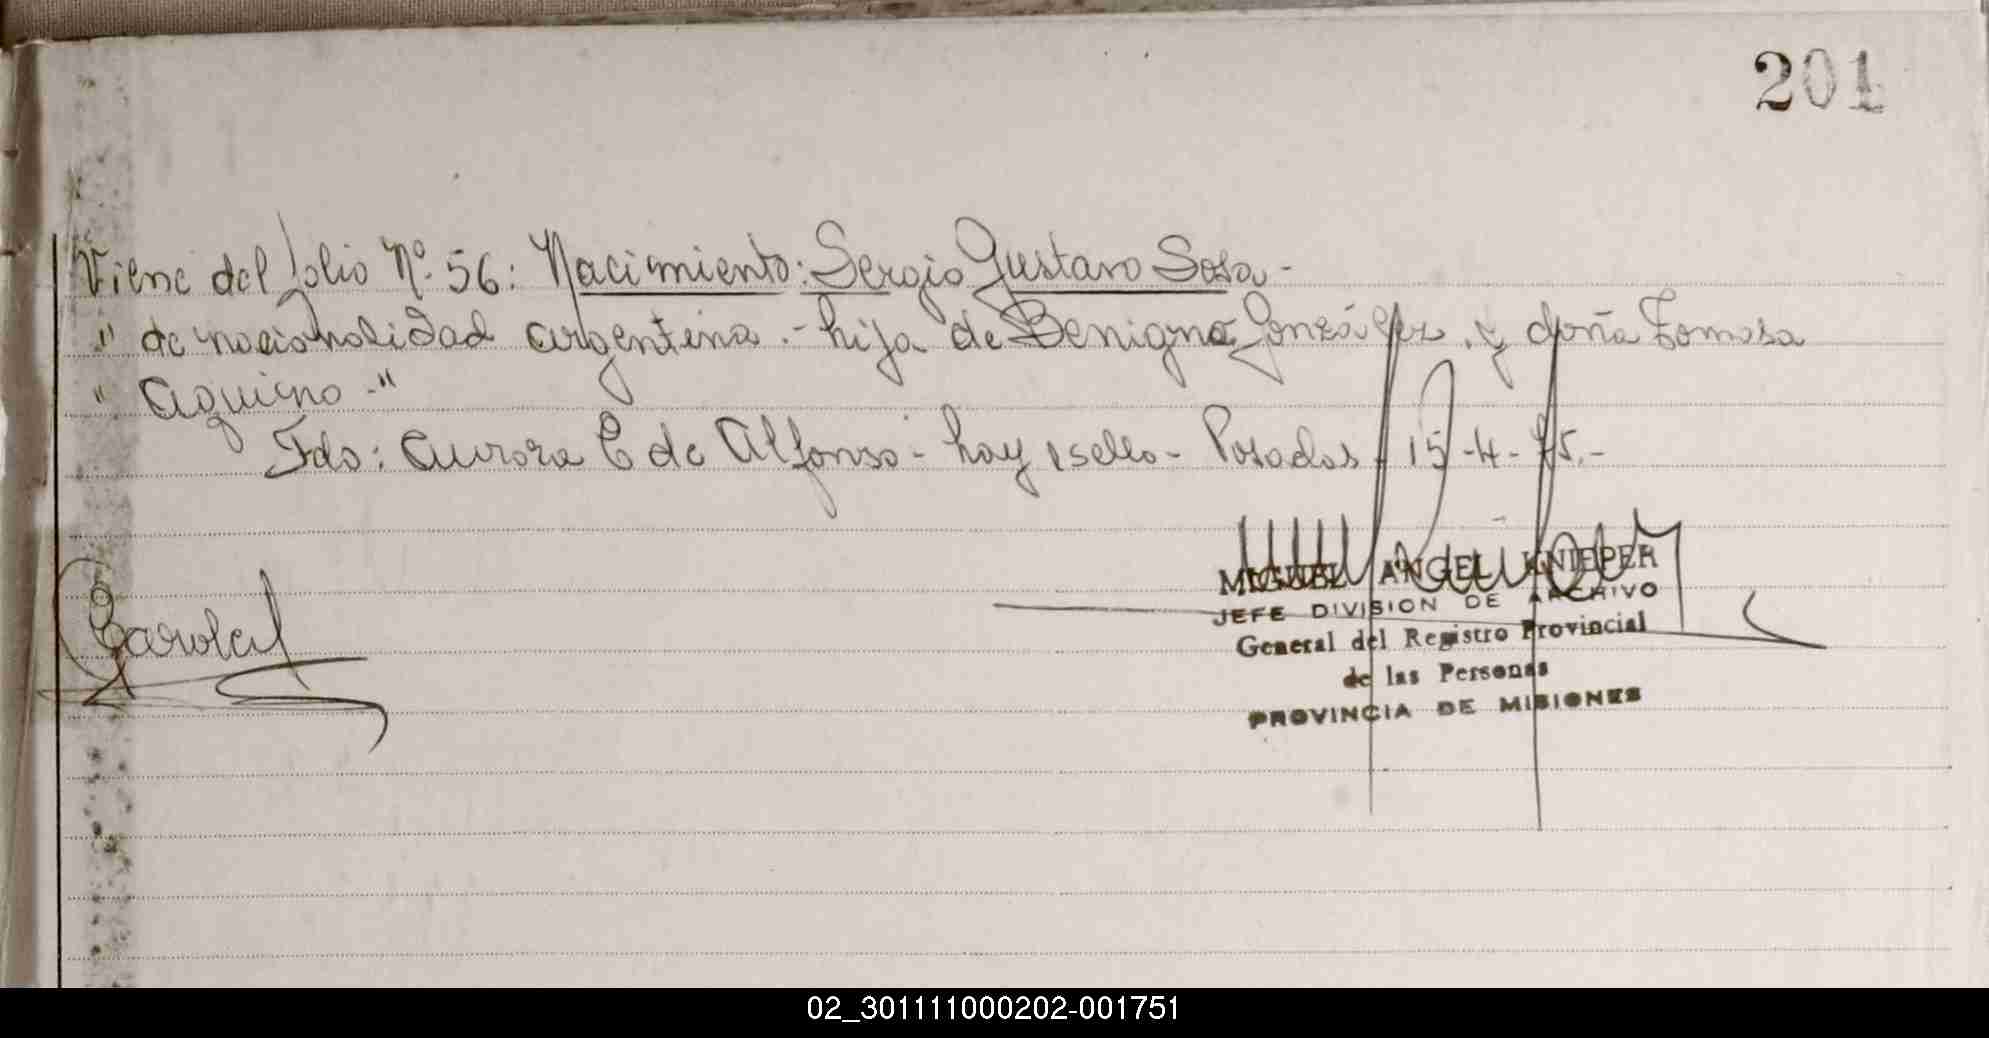 201
Viene del folio Nº 56: Nacimiento: Sergio Gustavo Sosa.-
" de nacionalidad argentina.- hija de Benigno González y doña Tomasa
" Aquino.-"
Fdo: Aurora C de Alfonso - hay 1 sello - Posadas 15-4-75.-
MIGUEL ANGEL KNIEPER
JEFE DIVISION DE ARCHIVO
General del Registro Provincial
de las Personas
PROVINCIA DE MISIONES
02_301111000202-001751